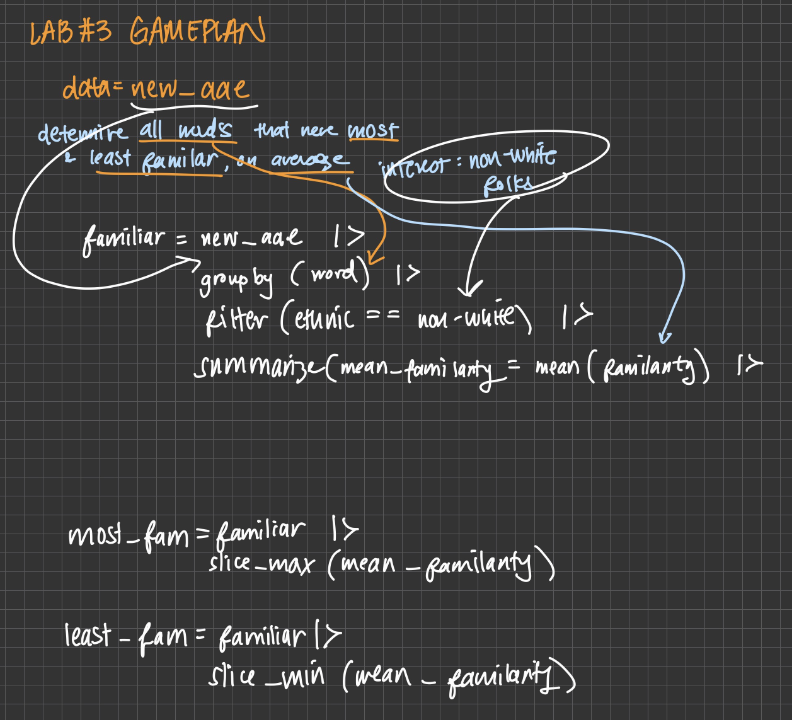 LAB #3 GAMEPLAN
data = new_aae
determine all words that were most
& least familar, on average
interest: non-white
folks
familiar = new_aae |>
group by (word) |>
filter (ethnic == non-white) |>
summarize(mean_familarity = mean (familarity) |>
most_fam = familiar |>
slice_max (mean_familarity)
least_fam = familiar |>
slice_min (mean_familarity)